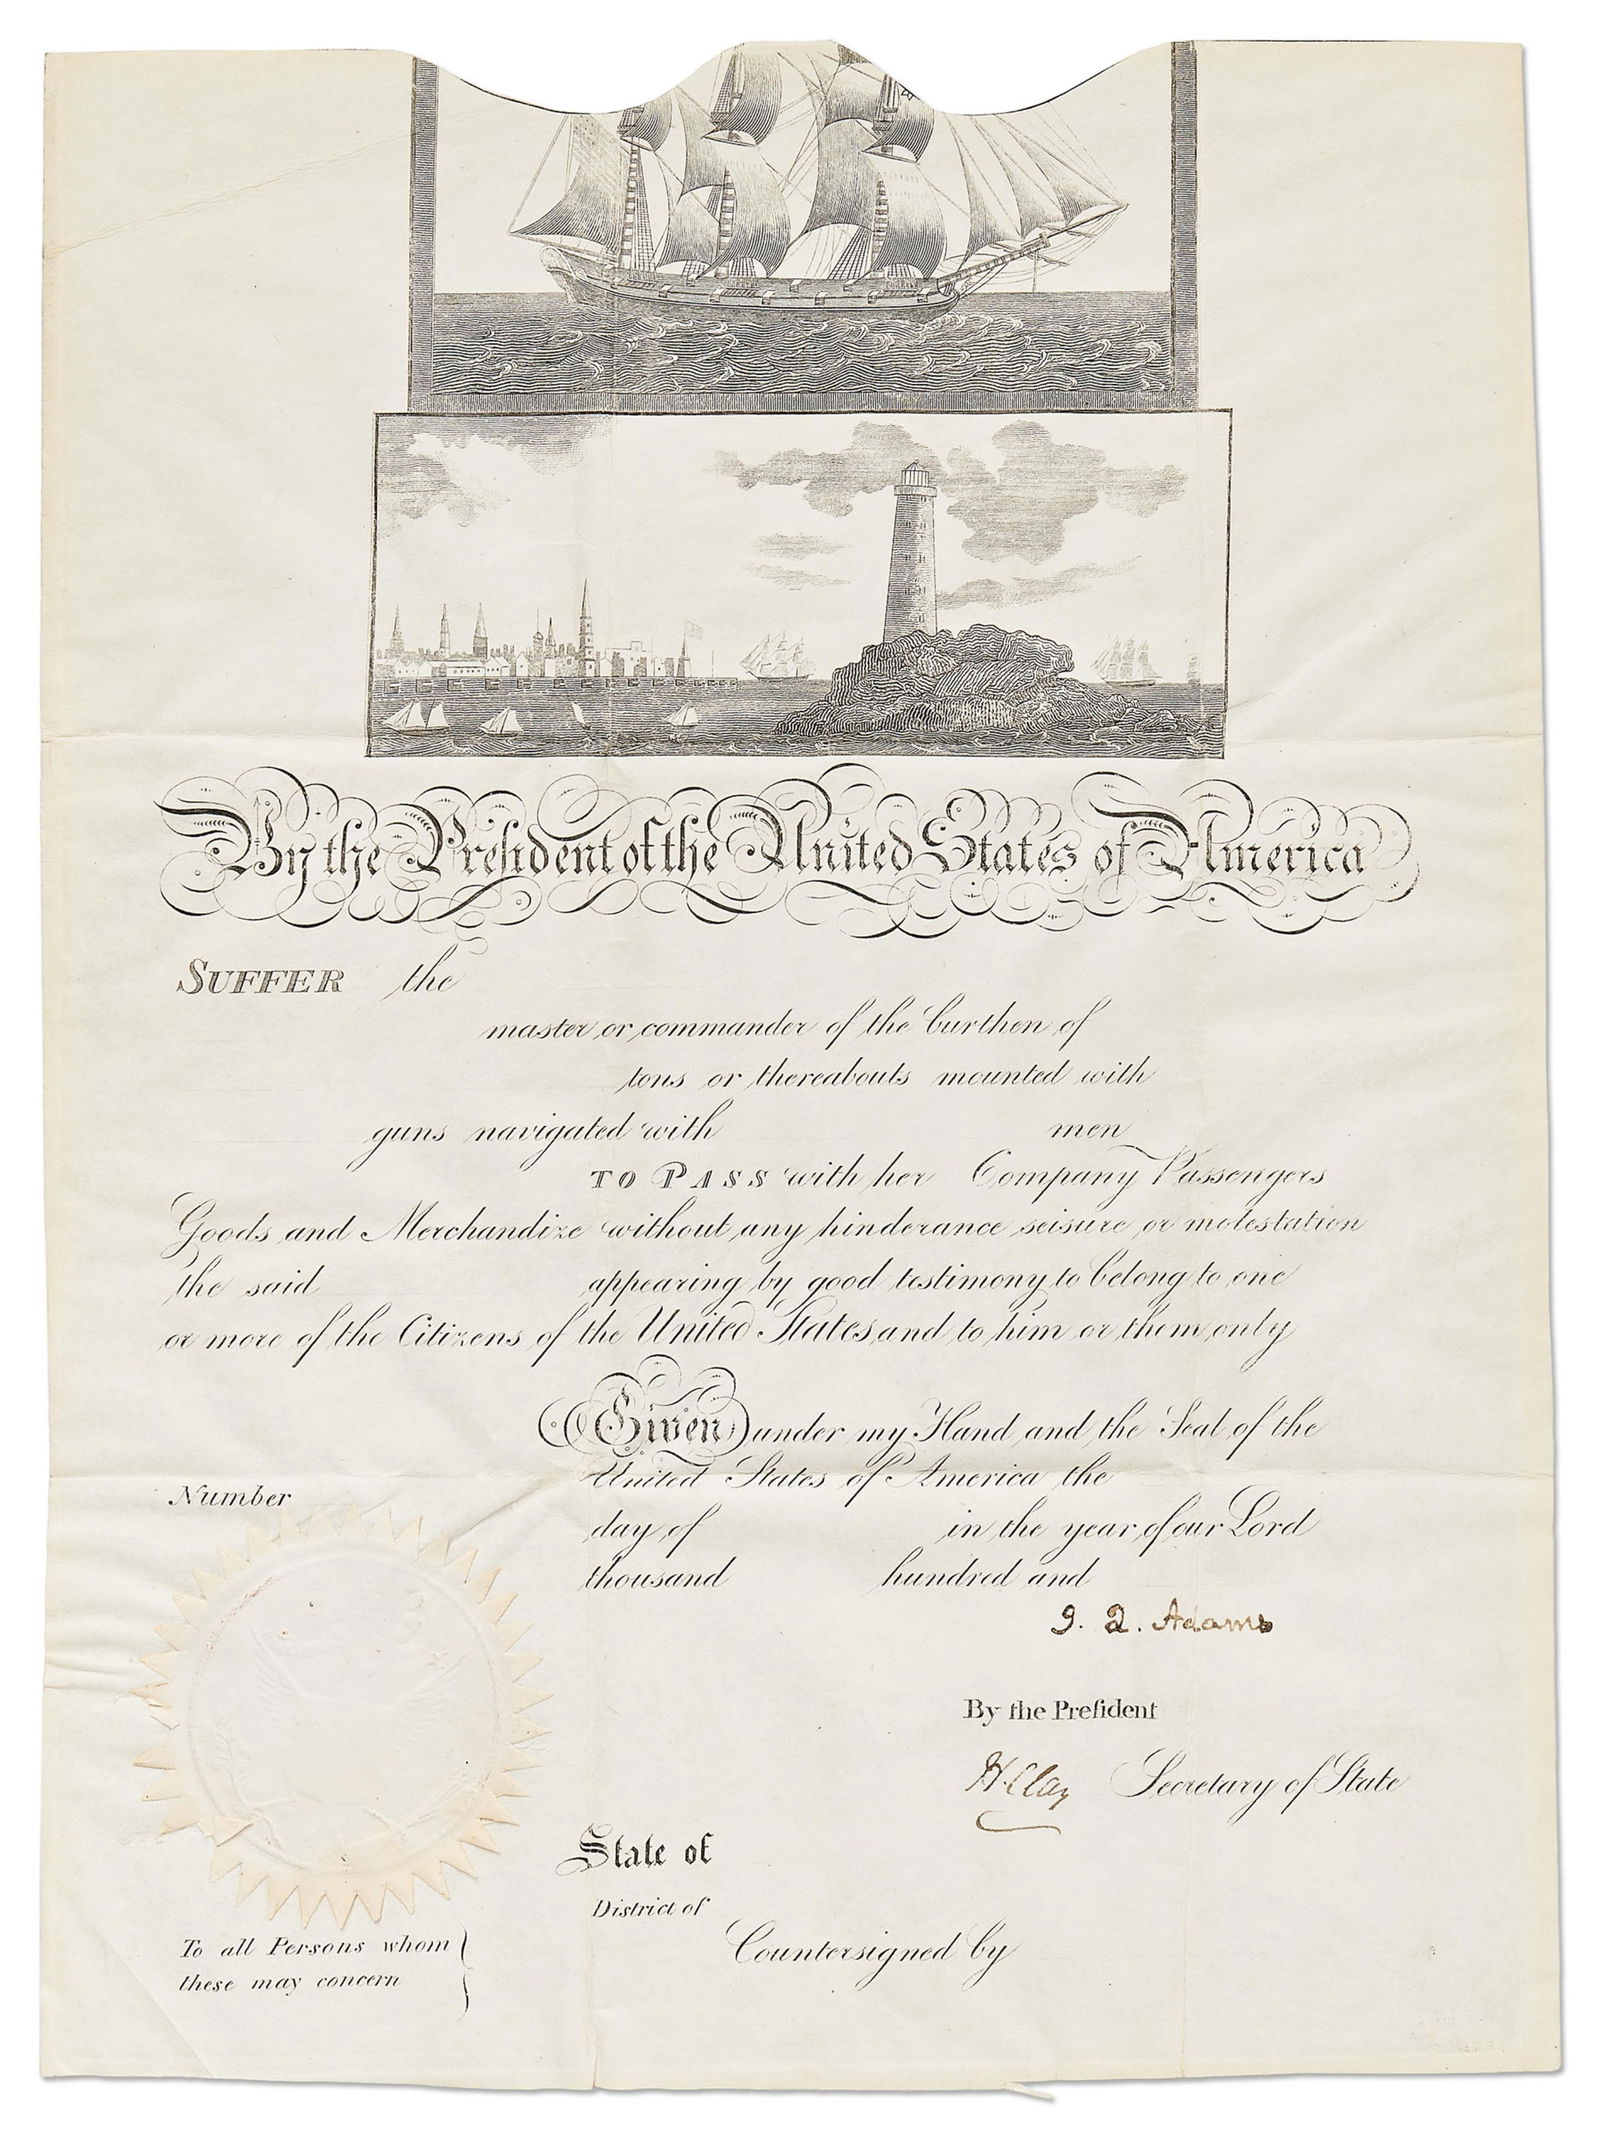 By the President of the United States of America
SUFFER the
master or commander of the burthen of
tons or thereabouts mounted with
guns navigated with men
TO PASS with her Company Passengers
Goods and Merchandize without any hinderance seisure or molestation
the said appearing by good testimony to belong to one
or more of the Citizens of the United States and to him or them only
Given under my Hand and the Seal of the
United States of America the
Number
day of in the year of our Lord
thousand hundred and
J. Q. Adams
By the Preſident
H. Clay Secretary of State
State of
District of
Countersigned by
To all Persons whom
these may concern